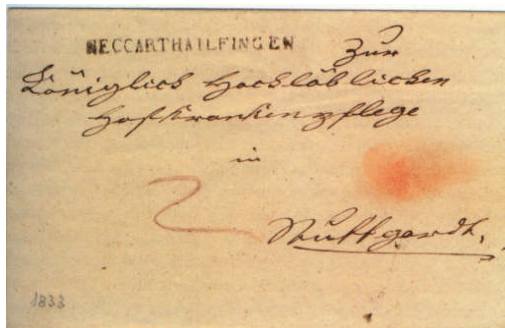 NECCARTHAILFINGEN
Zur
Königlich Hochlöblichen
Hofkrankenpflege
in
2
Stuttgardt,
1833